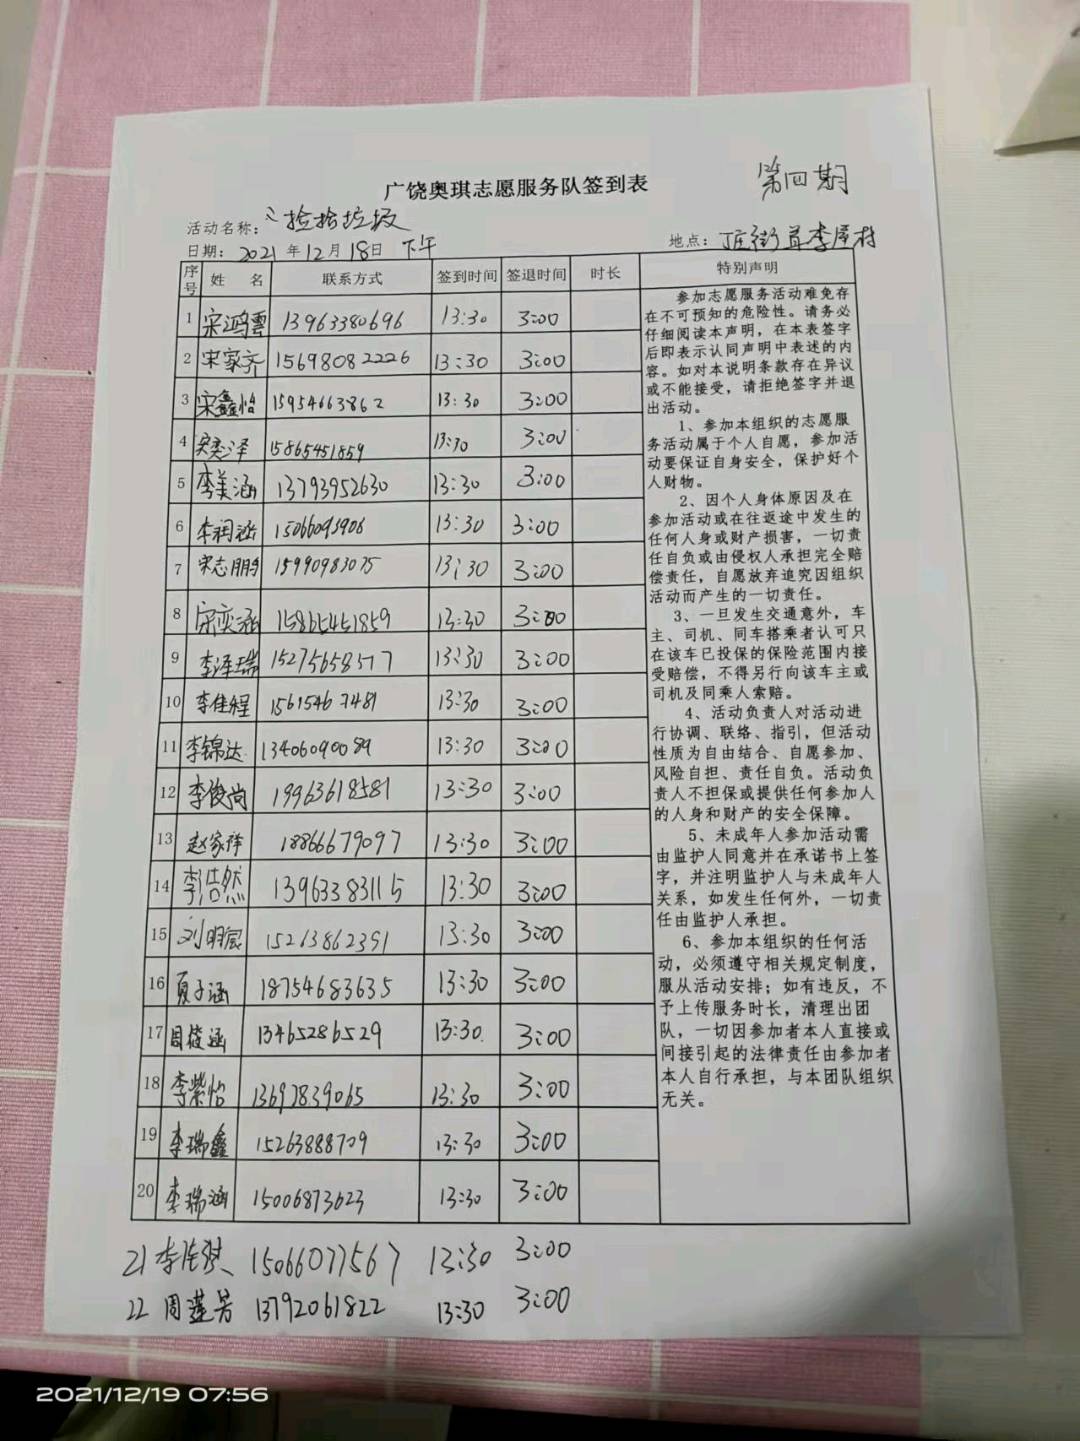 第四期
广饶奥琪志愿服务队签到表
活动名称：捡拾垃圾
日期：2021年12月18日 下午 地点：丁庄街道李屋村
序号 姓名 联系方式 签到时间 签退时间 时长 特别声明
1 宋鸿雲 13963380696 13:30 3:00
2 宋家齐 15698082226 13:30 3:00
3 宋鑫怡 15954663862 13:30 3:00
4 宋奕泽 15865451859 13:30 3:00
5 李美涵 13793952630 13:30 3:00
6 李润涵 15066093906 13:30 3:00
7 宋志鹏 15990983075 13:30 3:00
8 宋奕涵 15865451859 13:30 3:00
9 李泽瑞 15275658577 13:30 3:00
10 李佳程 15615467481 13:30 3:00
11 李锦达 13406090089 13:30 3:00
12 李俊尚 19963618581 13:30 3:00
13 赵家祥 18866679097 13:30 3:00
14 李浩然 13963383115 13:30 3:00
15 刘明宸 15263862391 13:30 3:00
16 夏子涵 18754683635 13:30 3:00
17 周筱涵 13465286529 13:30 3:00
18 李紫怡 13697839065 13:30 3:00
19 李瑞鑫 15263888709 13:30 3:00
20 李瑞涵 15006873623 13:30 3:00
21 李 15066077567 13:30 3:00
22 周莲芳 13792061822 13:30 3:00
参加志愿服务活动难免存
在不可预知的危险性。请务必
仔细阅读本声明，在本表签字
后即表示认同声明中表述的内
容。如对本说明条款存在异议
或不能接受，请拒绝签字并退
出活动。
1、参加本组织的志愿服
务活动属于个人自愿，参加活
动要保证自身安全，保护好个
人财物。
2、因个人身体原因及在
参加活动或在往返途中发生的
任何人身或财产损害，一切责
任自负或由侵权人承担完全赔
偿责任，自愿放弃追究因组织
活动而产生的一切责任。
3、一旦发生交通意外，车
主、司机、同车搭乘者认可只
在该车已投保的保险范围内接
受赔偿，不得另行向该车主或
司机及同乘人索赔。
4、活动负责人对活动进
行协调、联络、指引，但活动
性质为自由结合、自愿参加、
风险自担、责任自负。活动负
责人不担保或提供任何参加人
的人身和财产的安全保障。
5、未成年人参加活动需
由监护人同意并在承诺书上签
字，并注明监护人与未成年人
关系，如发生任何外，一切责
任由监护人承担。
6、参加本组织的任何活
动，必须遵守相关规定制度，
服从活动安排；如有违反，不
予上传服务时长，清理出团
队，一切因参加者本人直接或
间接引起的法律责任由参加者
本人自行承担，与本团队组织
无关。
2021/12/19 07:56